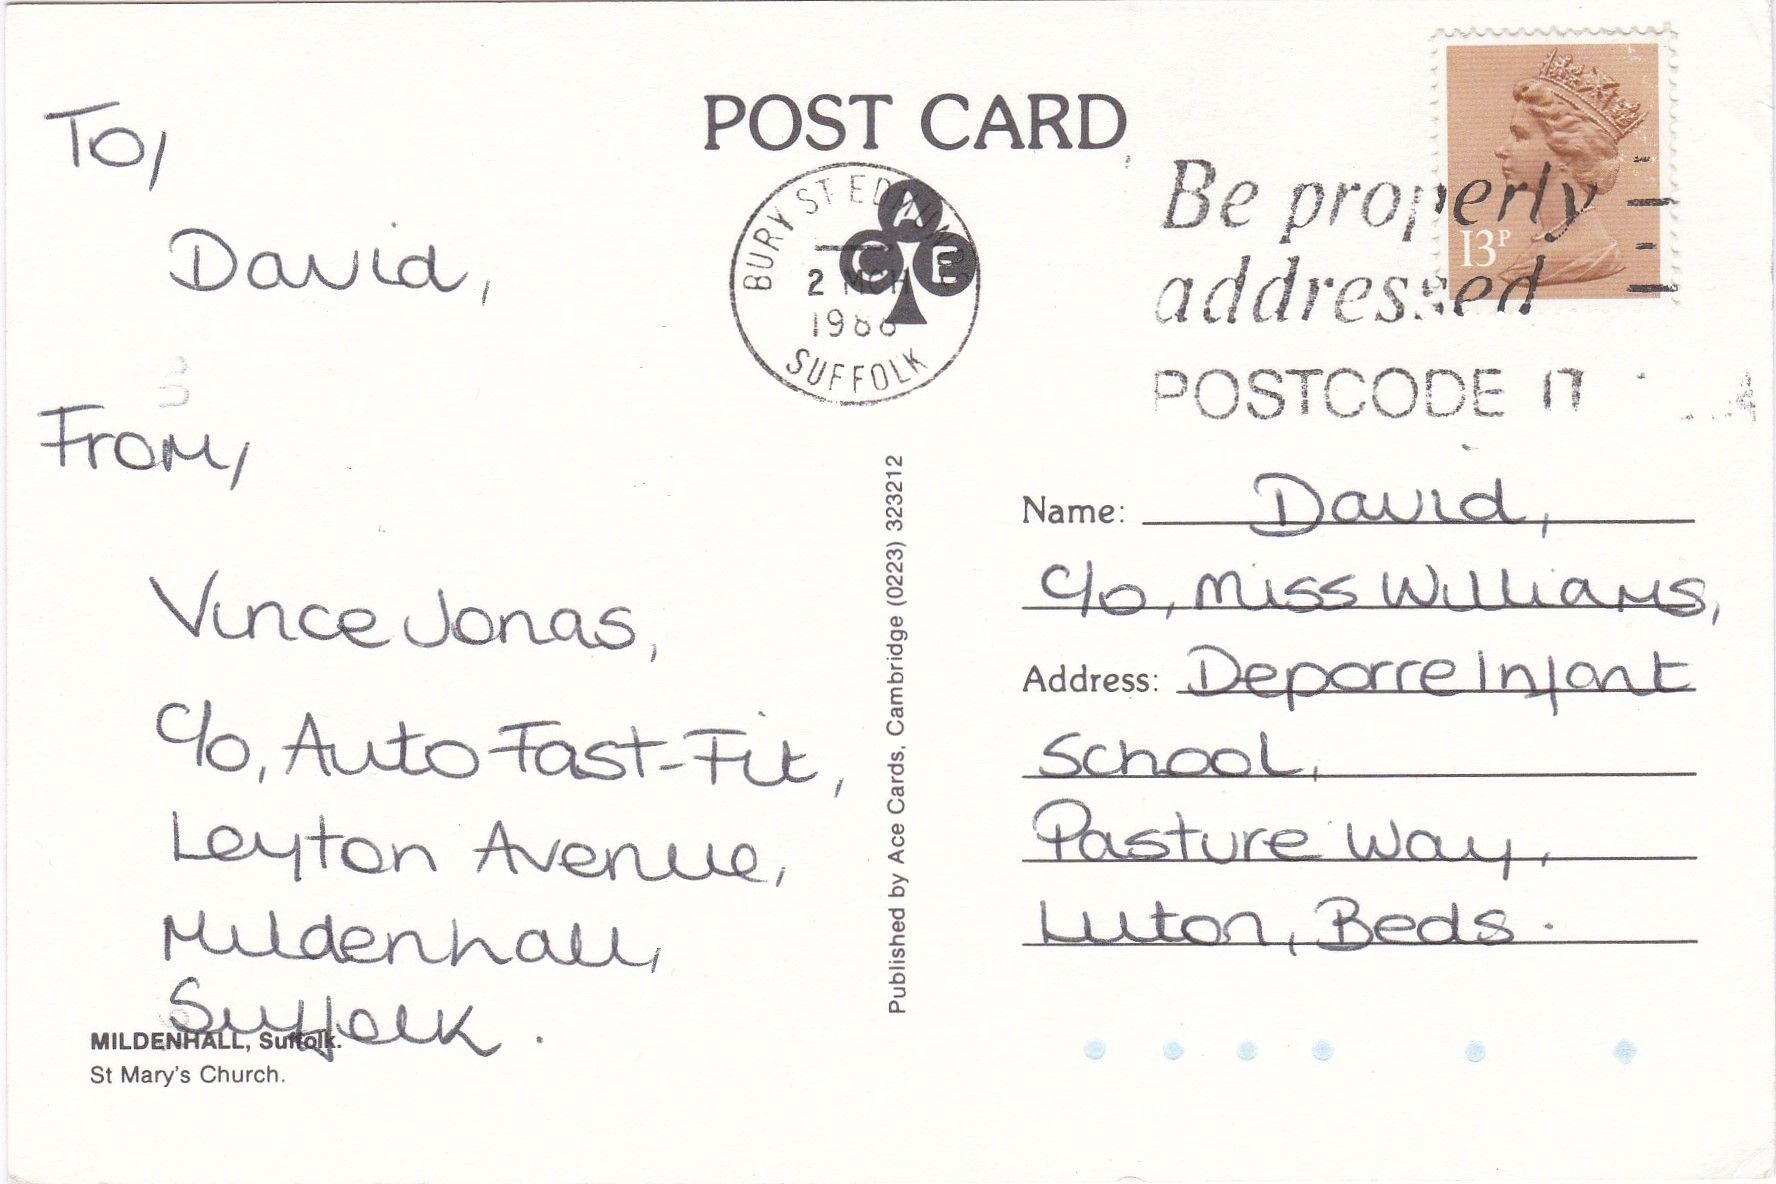 POST CARD
To,
David,
From,
Vince Jonas,
c/o, Auto Fast-Fit,
Leyton Avenue,
Mildenhall,
Suffolk.
MILDENHALL, Suffolk.
St Mary's Church.
BURY ST EDMUNDS
2 MCH
1988
SUFFOLK
ACE
Published by Ace Cards, Cambridge (0223) 323212
13P
Be properly
addressed
POSTCODE IT
Name: David,
c/o, Miss Williams,
Address: Deporre Infant
School,
Pasture Way,
Luton, Beds.